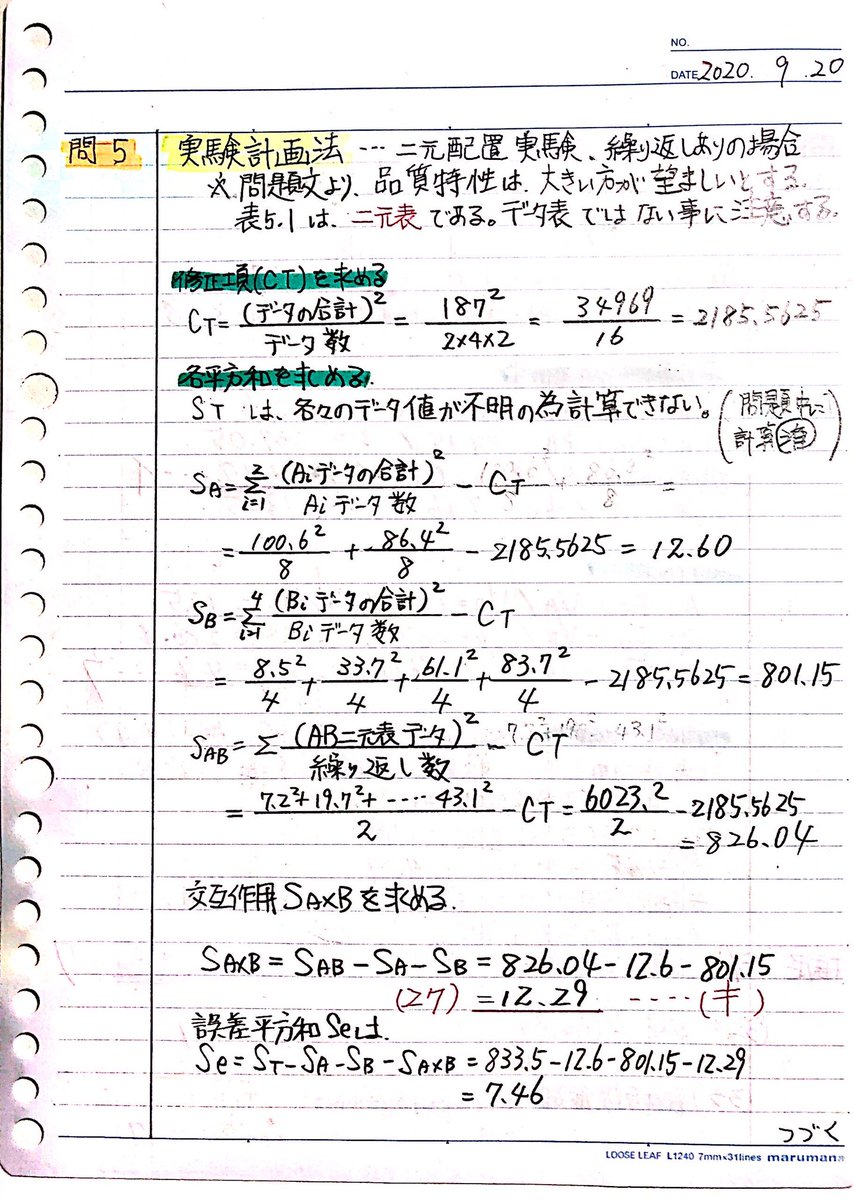 NO.
DATE 2020. 9. 20
問5 実験計画法 … 二元配置実験、繰り返しありの場合
※問題文より、品質特性は、大きい方が望ましいとする。
表5.1は、二元表である。データ表ではない事に注意する。
修正項(CT)を求める
CT = (データの合計)² / データ数 = 187² / 2×4×2 = 34969 / 16 = 2185.5625
各平方和を求める。
STは、各々のデータ値が不明の為計算できない。(問題中に計算済)
SA = Σ_{i=1}^{2} (Aiデータの合計)² / Aiデータ数 − CT =
= 100.6² / 8 + 86.4² / 8 − 2185.5625 = 12.60
SB = Σ_{i=1}^{4} (Biデータの合計)² / Biデータ数 − CT
= 8.5² / 4 + 33.7² / 4 + 61.1² / 4 + 83.7² / 4 − 2185.5625 = 801.15
SAB = Σ (AB二元表データ)² / 繰り返し数 − CT
= 7.2² + 19.7² + ‥‥ 43.1² / 2 − CT = 6023.2 / 2 − 2185.5625
= 826.04
交互作用SA×Bを求める.
SA×B = SAB − SA − SB = 826.04 − 12.6 − 801.15
(27) = 12.29 ‥‥ (キ)
誤差平方和Seは.
Se = ST − SA − SB − SA×B = 833.5 − 12.6 − 801.15 − 12.29
= 7.46
つづく
LOOSE LEAF L1240 7mm×31lines maruman